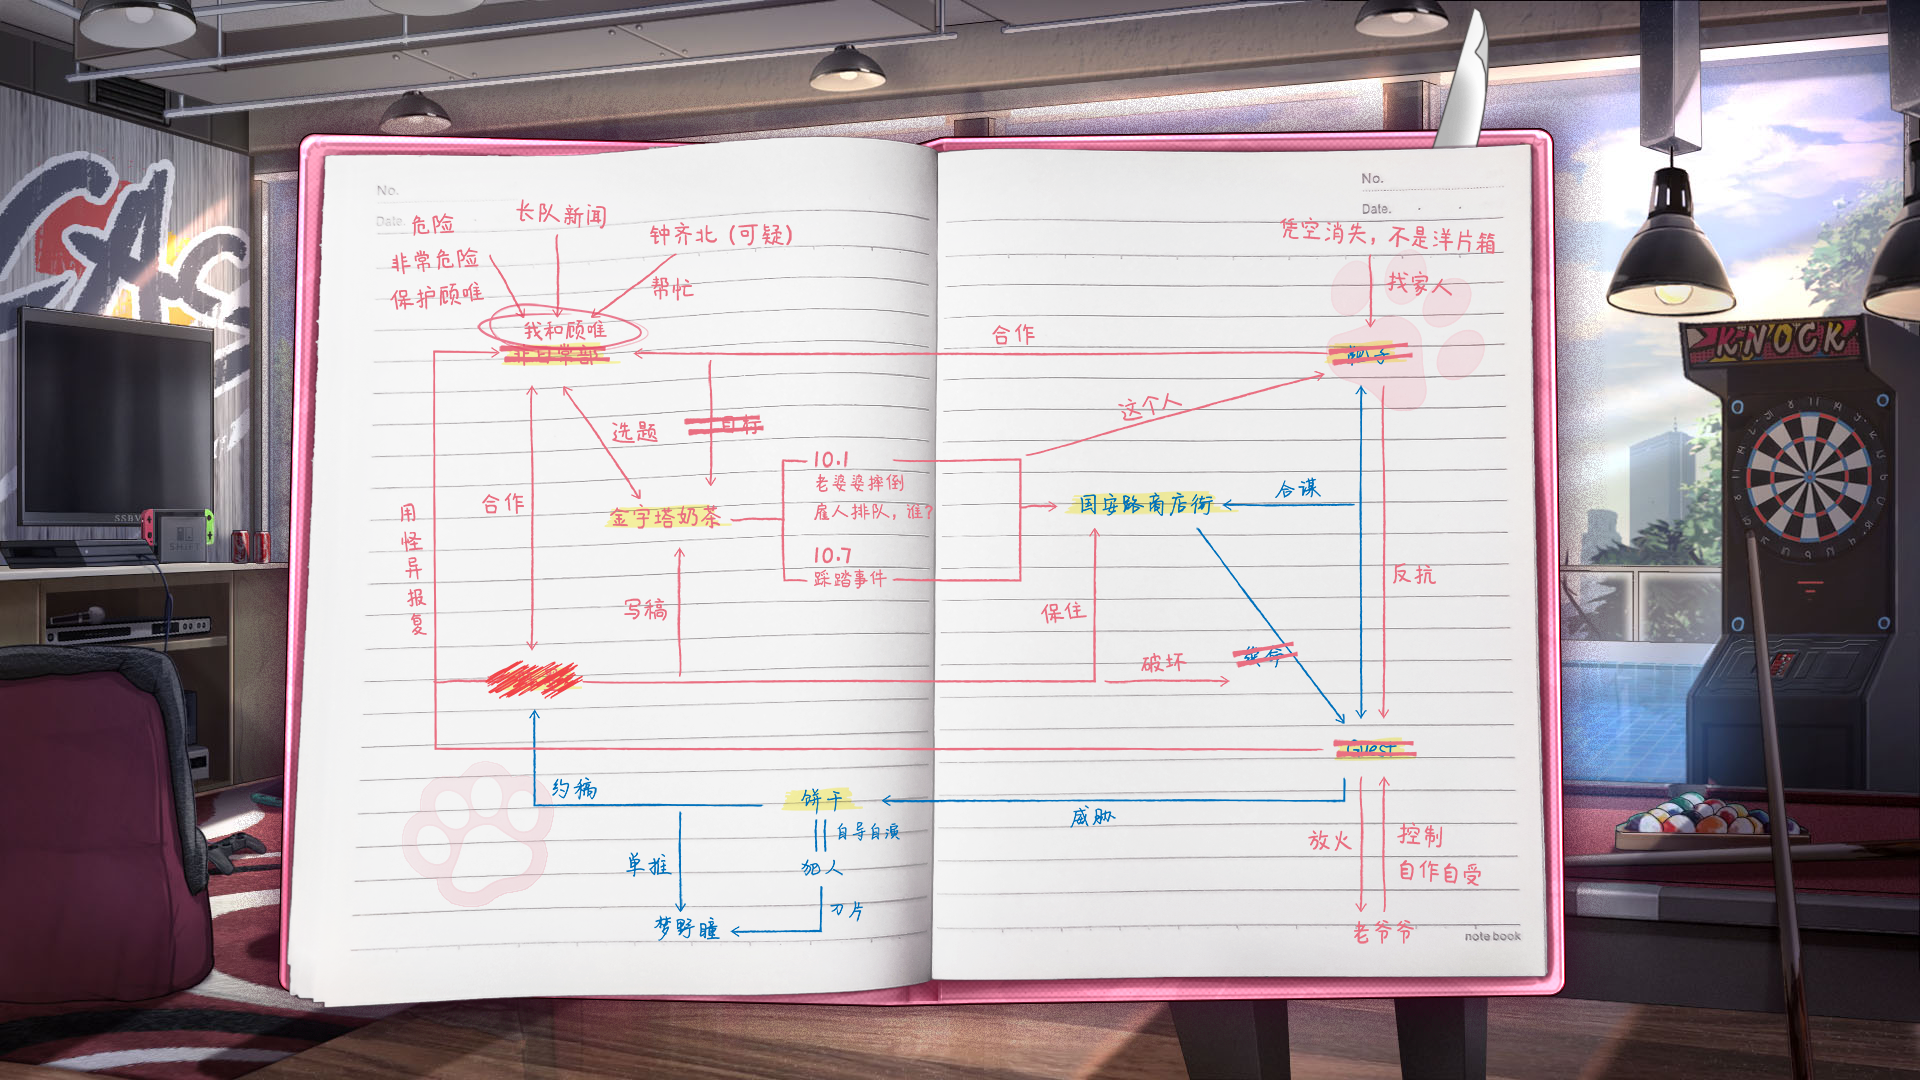 No.
Date.
危险
非常危险
保护顾唯
长队新闻
钟齐北（可疑）
帮忙
我和顾唯
非日常部
合作
选题
目标
用怪异报复
合作
金字塔奶茶
10.1
老婆婆摔倒
雇人排队，谁？
10.7
踩踏事件
写稿
约稿
饼干
自导自演
犯人
刀片
单推
梦野瞳
No.
Date.
凭空消失，不是洋片箱
找家人
这个人
国安路商店街
合谋
反抗
保住
破坏
Guest
威胁
放火
控制
自作自受
老爷爷
note book
KNOCK
SSBV
SHIFT